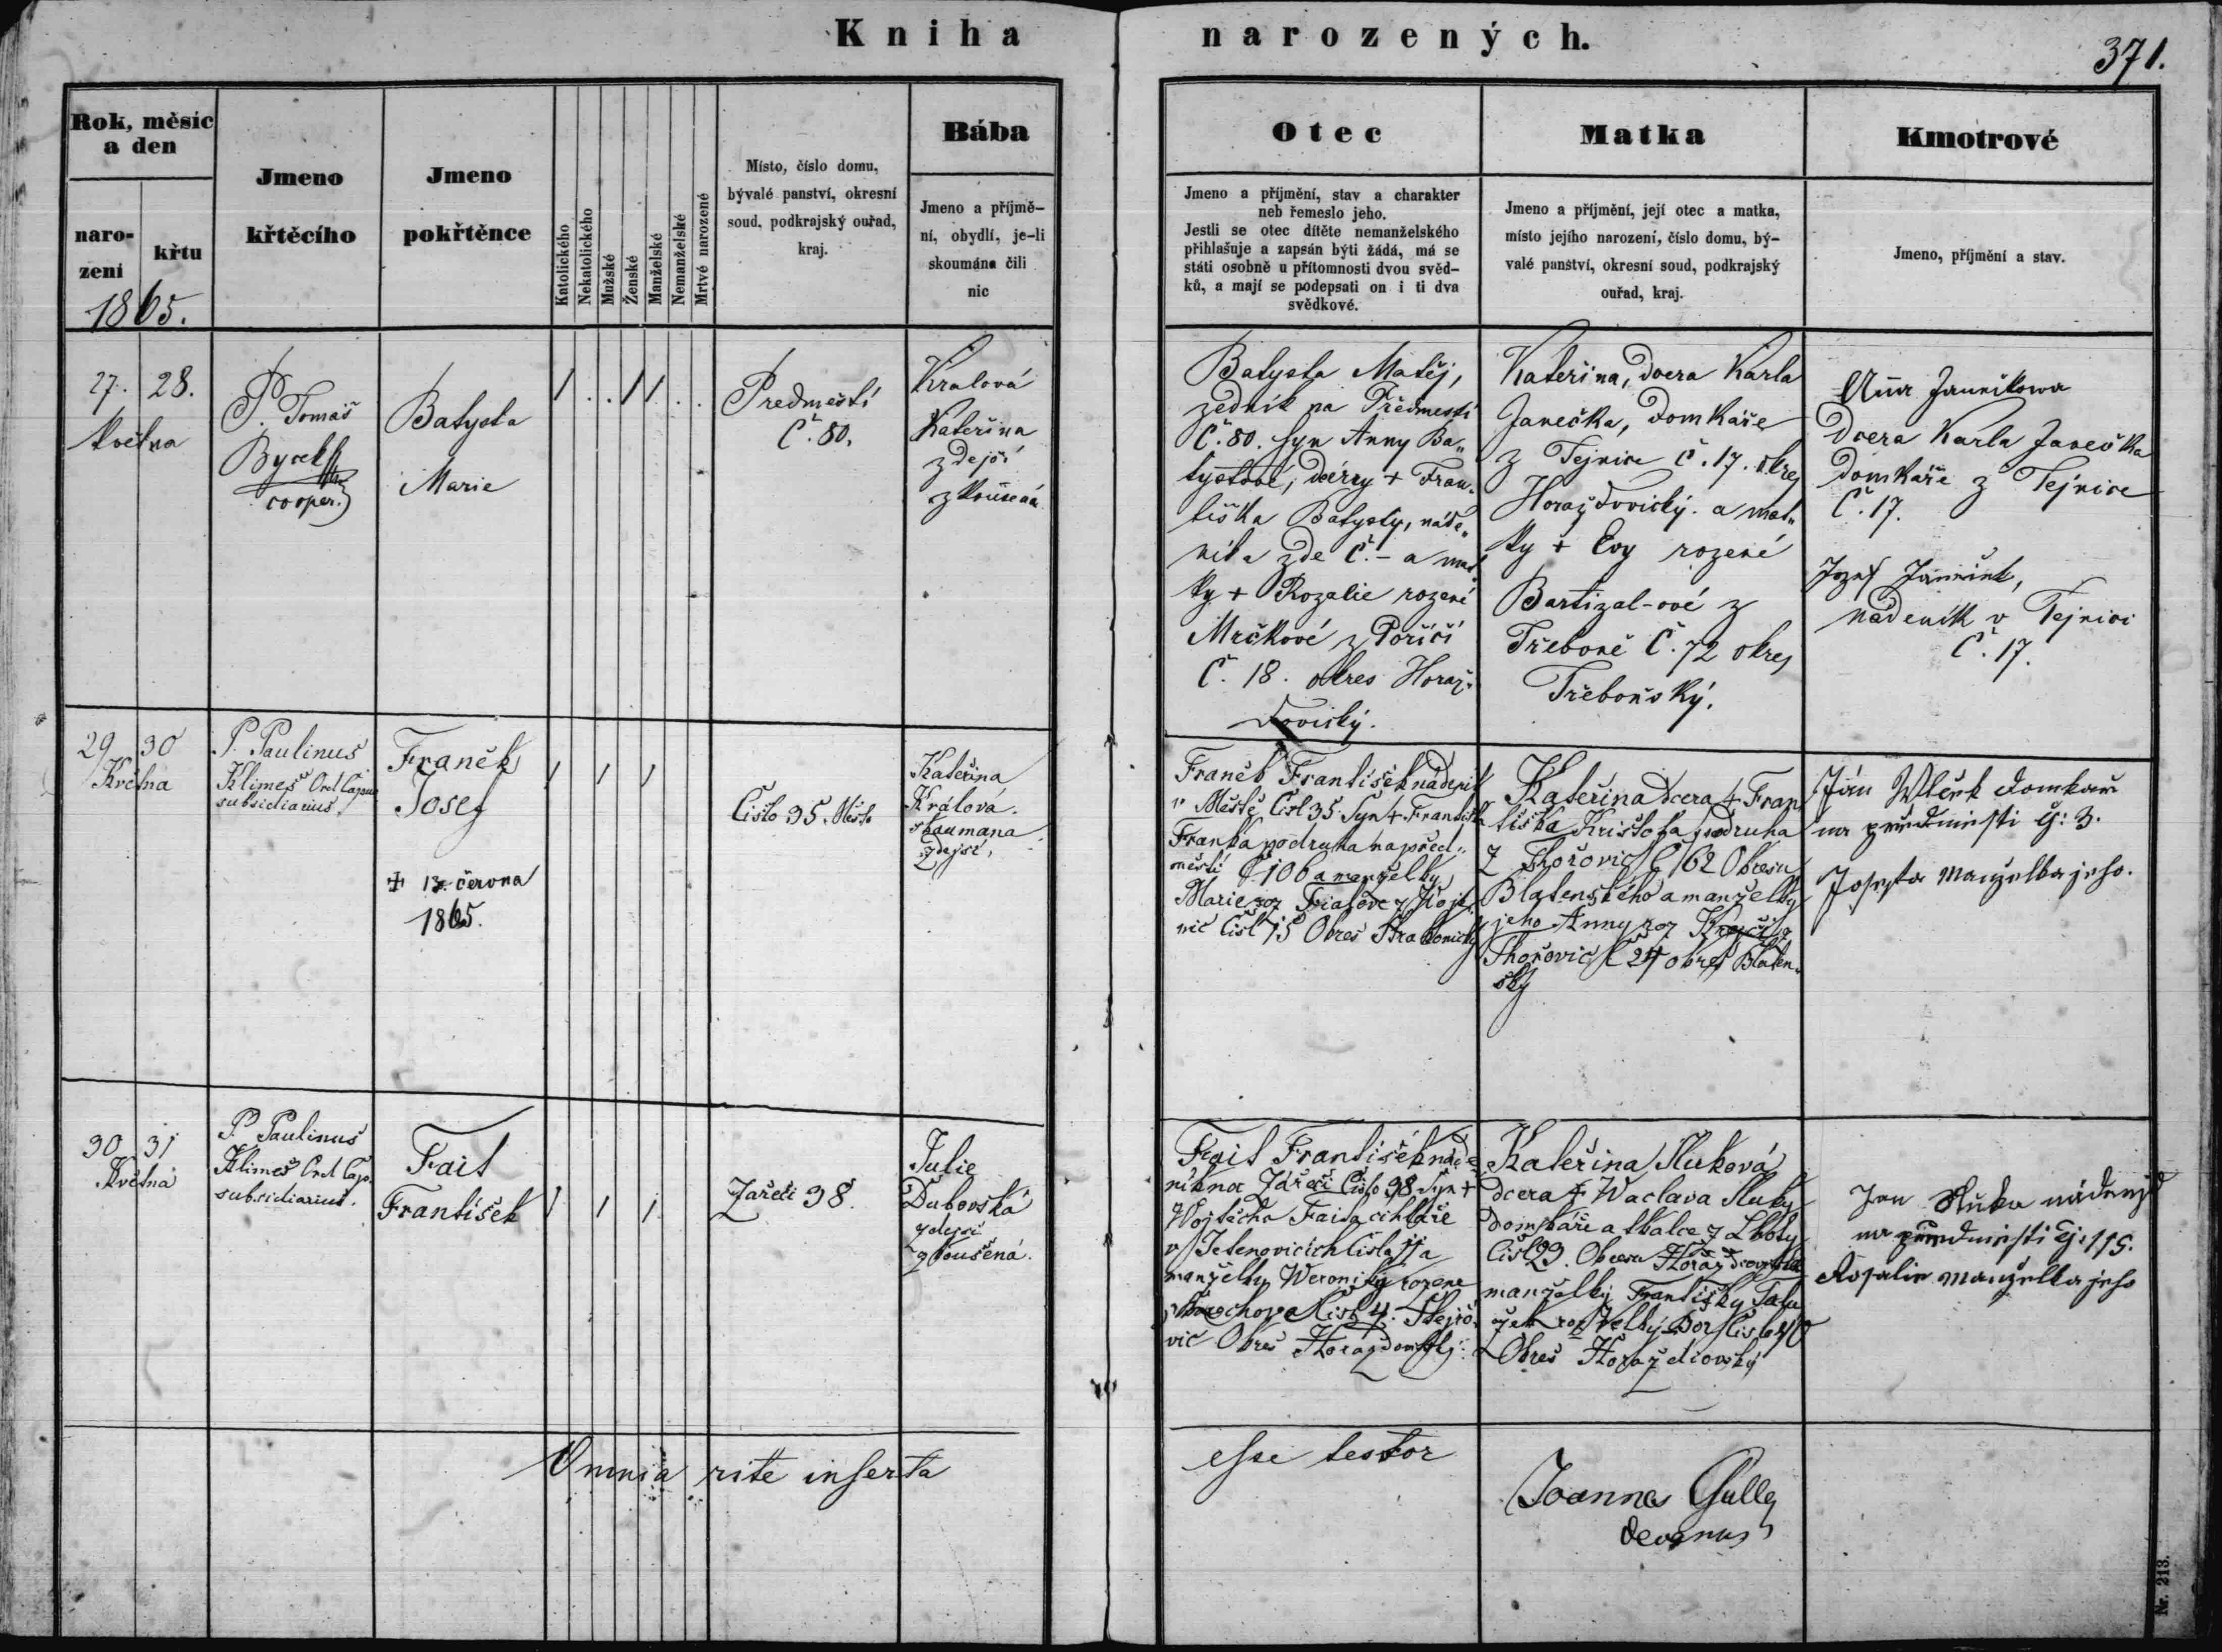 Kniha narozených.
371.
Rok, měsíc
a den
naro-
zení
křtu
1865.
Jmeno
křtěcího
Jmeno
pokřtěnce
Katolického
Nekatolického
Mužské
Ženské
Manželské
Nemanželské
Mrtvé narozené
Místo, číslo domu,
bývalé panství, okresní
soud, podkrajský ouřad,
kraj.
Bába
Jmeno a příjmě-
ní, obydlí, je-li
skoumána čili
nic
Otec
Jmeno a příjmění, stav a charakter
neb řemeslo jeho.
Jestli se otec dítěte nemanželského
přihlašuje a zapsán býti žádá, má se
státi osobně u přítomnosti dvou svěd-
ků, a mají se podepsati on i ti dva
svědkové.
Matka
Jmeno a příjmění, její otec a matka,
místo jejího narození, číslo domu, bý-
valé panství, okresní soud, podkrajský
ouřad, kraj.
Kmotrové
Jmeno, příjmění a stav.
27. 28.
května
P. Tomáš
Bycek
cooper.
Batysta
Marie
1 . . 1 1 . .
Předměstí
Č. 80.
Kralová
Kateřina
zdejší
zkoušená
Batysta Matěj,
zedník na Předměstí
Č. 80. syn Anny Ba„
tystové, dcéry + Fran„
tiška Batysty, náde„
níka zde Č. – a mat„
ky + Rozalie rozené
Mrčkové z Poříčí
Č. 18. okres Horaž„
dovický.
Kateřina, dcera Karla
Janečka, domkáře
z Tejnice č. 17. okres
Horažďovický. a mat„
ky + Evy rozené
Bartizal-ové z
Třeboně Č. 72 okres
Třeboňský.
Anna Janečkowa
dcera Karla Janečka
domkáře z Tejnice
Č. 17.
Josef
nádeník v Tejnici
Č. 17.
29 30
Května
P. Paulinus
Klimeš Ord Capuc
subsidiarius.
Franěk
Josef
+ 13. června
1865.
1 1 1
Číslo 35. Město
Kateřina
Králová.
skoumana
zdejší,
Franěk František nádeník
v Městě Čísl 35 Syn + Františka
Franka podruha na před„
městí Č 106 a manželky
Marie roz Fialove z
nic Čísl 15 Okres Strakonický
Kateřina dcera + Fran
tiška Krištofa podruha
z Thořovic Č 62 Okresu
Blatenského a manželky
jeho Anny roz Krejčí z
Thořovic Č 24 okres Blaten„
ský
Ján Wlček domkař
na předměsti č: 3.
Josefa Manželka jeho.
30 31
Května
P. Paulinus
Klimeš Ord Cap.
subsidiarius.
Fait
František
1 1 1
Zářečí 98.
Julie
Dubovská
zdejší
zkoušená.
Fait František náde„
ník na Zářečí Číslo 98. Syn +
Wojtěcha Faita cihláře
v Jetenovicích čísla 11 a
manželky Weroniky rozene
Čísl 4.
vic Okres Horažďovský.
Kateřina Sluková
dcera + Waclava Sluky
domkáře a tkalce z Lhoty
čísl 29. Okresu Horažďovského
manželky Františky
roz Velký Bor Číslo 40
Okres Horažďovský
Jan Sluka nádeník
na předměsti č: 115.
Rosalie manželka jeho
Omnia rite inserta
esse testor
Joannes Gully
decanus
Nr. 213.